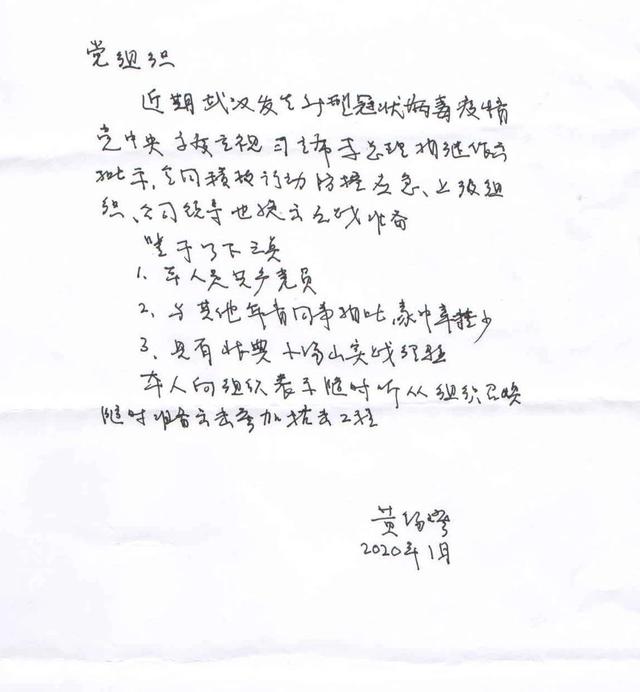 党组织
近期武汉发生新型冠状病毒疫情
党中央高度重视习主席李总理相继作出
批示,全国积极行动防控应急、上级组
织、公司领导也提出应战准备
鉴于以下三点
1. 本人是共产党员
2. 与其他年青同事相比,家中牵挂少
3. 具有 小汤山实战经验
本人向组织表示随时听从组织召唤
随时准备出去参加抗击工程
黄
2020年1月